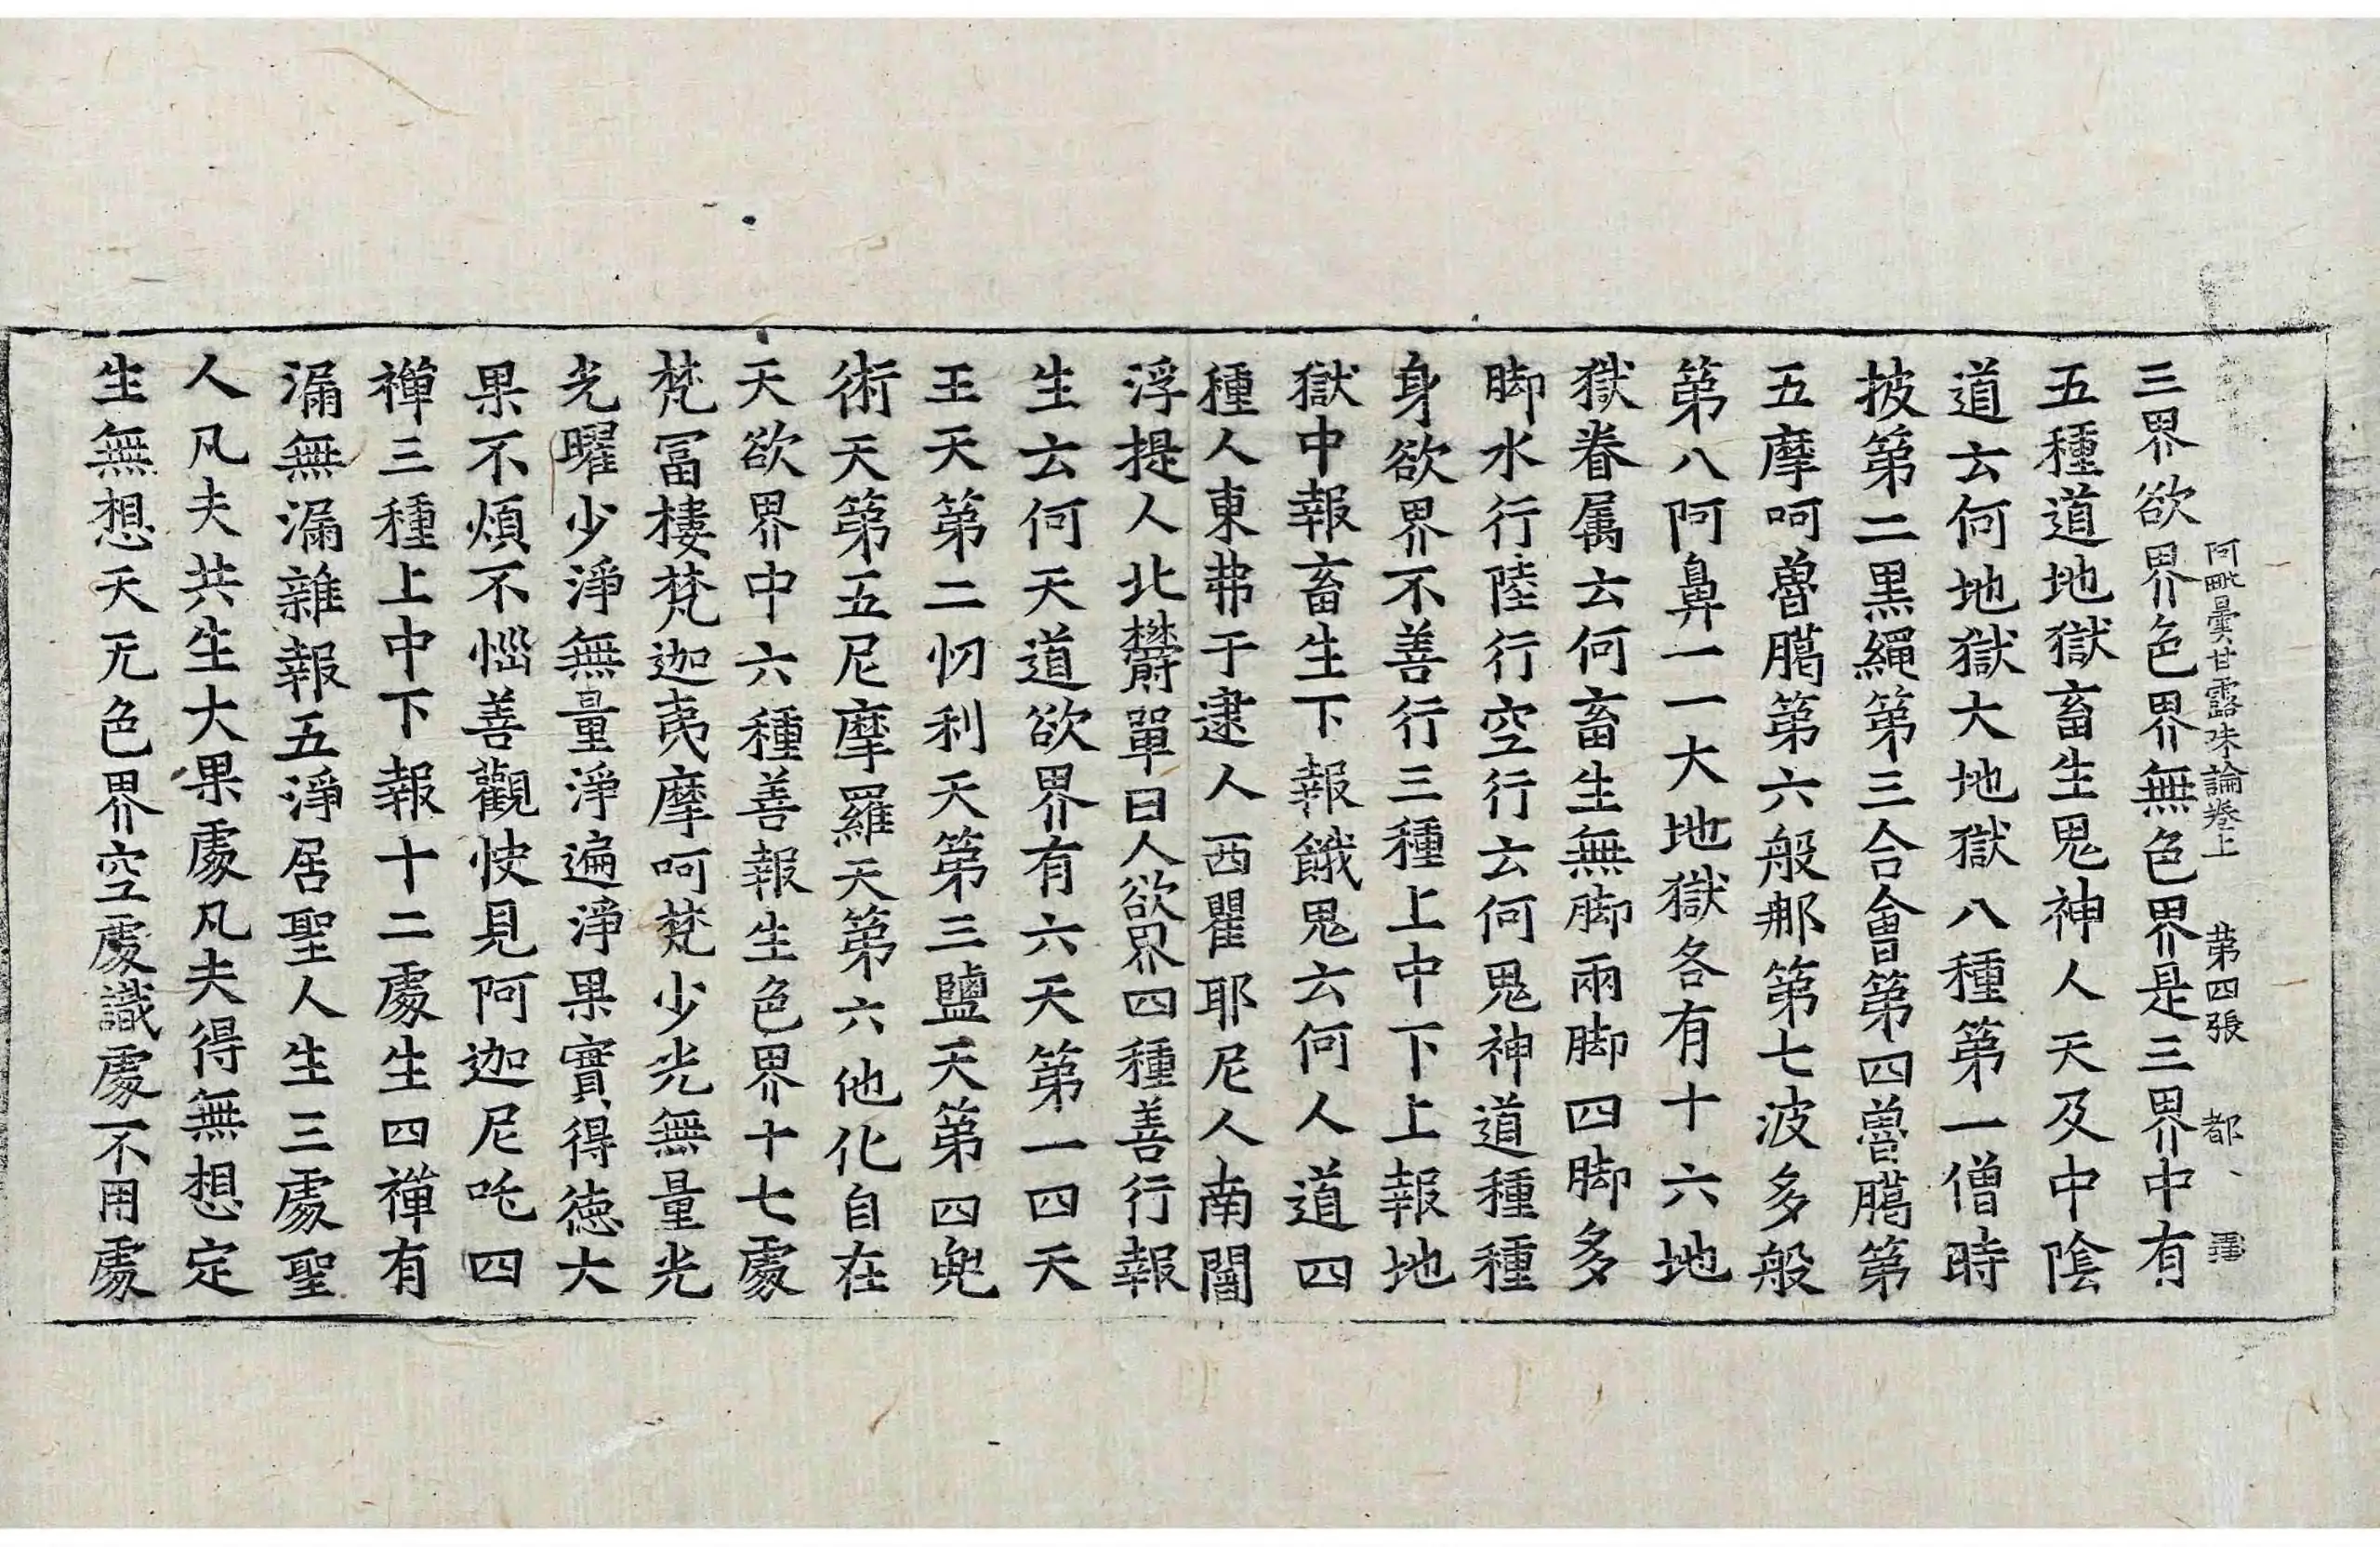 阿毗曇甘露味論卷上 第四張 都
三界欲界色界無色界是三界中有
五種道地獄畜生鬼神人天及中陰
道云何地獄大地獄八種第一僧時
披第二黑繩第三合會第四嚕臈第
五摩呵嚕臈第六般𨚗第七波多般
第八阿鼻一一大地獄各有十六地
獄眷属云何畜生無脚兩脚四脚多
脚水行陸行空行云何鬼神道種種
身欲界不善行三種上中下上報地
獄中報畜生下報餓鬼云何人道四
種人東弗于逮人西瞿耶尼人南閻
浮提人北欝單曰人欲界四種善行報
生云何天道欲界有六天第一四天
王天第二忉利天第三鹽天第四兜
術天第五尼摩羅天第六他化自在
天欲界中六種善報生色界十七處
梵冨樓梵迦夷摩呵梵少光無量光
光曜少淨無量淨遍淨果實得德大
果不煩不惱善觀快見阿迦尼吒四
禪三種上中下報十二處生四禪有
漏無漏雜報五淨居聖人生三處聖
人凡夫共生大果處凡夫得無想定
生無想天无色界空處識處不用處